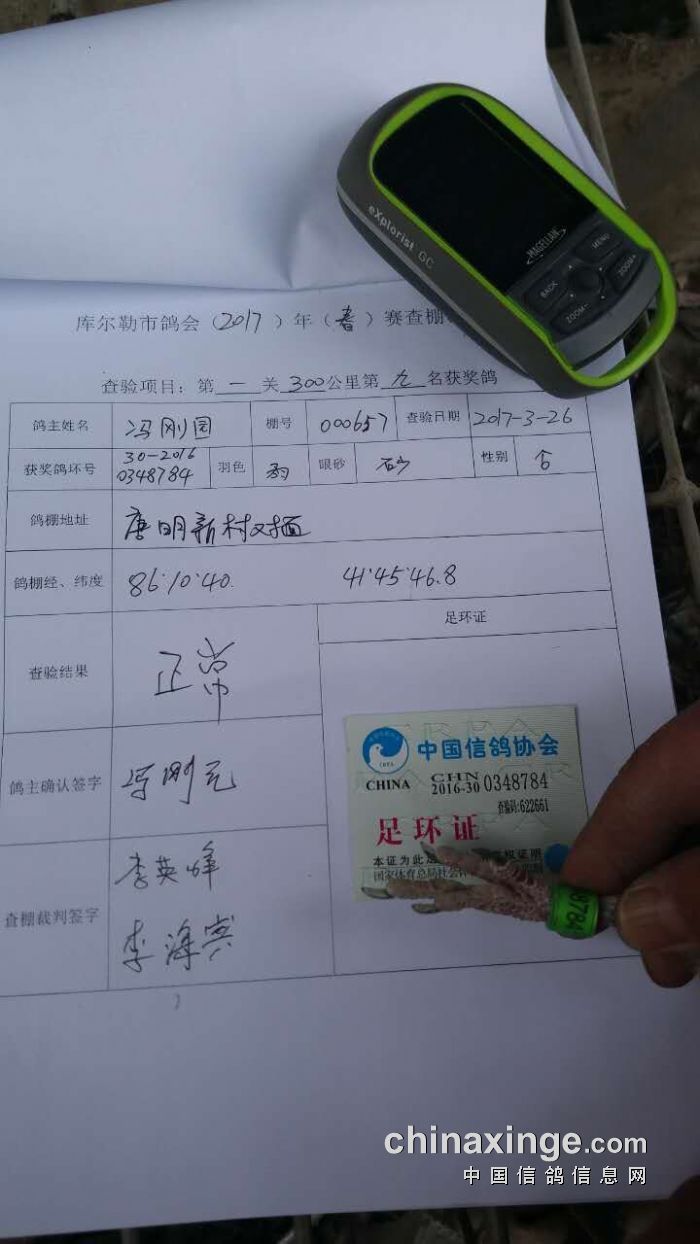 eXplorist GC
MAGELLAN
BACK
MENU
ZOOM-
ZOOM+
库尔勒市鸽会（2017）年（春）赛查棚
查验项目：第一关300公里第九名获奖鸽
鸽主姓名 冯刚园 棚号 000657 查验日期 2017-3-26
获奖鸽环号 30-2016 0348784 羽色 眼砂 砂 性别
鸽棚地址 唐明新村对面
鸽棚经、纬度 86°10′40 41°45′46.8
查验结果 正常
足环证
鸽主确认签字
查棚裁判签字 李英峰
李海宾
中国信鸽协会
CHRPA
CHINA CHN 2016-30 0348784
查编码:622661
足环证
本证为此足
权证明
国家体育总局社会体
8784
chinaxinge.com
中国信鸽信息网